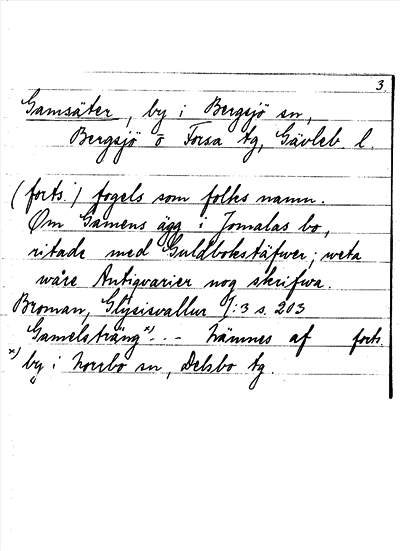 3.
Gamsäter, by i Bergsjö sn,
Bergsjö o Forsa tg, Gävleb. l.
(forts.) fogels som folks namn.
Om Gamens ägg i Jomalas bo,
ritade med Guldbokstäfwer; weta
wåre Antiqvarier nog skrifwa.
Broman, Glysisvallur I:3 s. 203
Gamelsträng x) - - - nämnes af forts.
x) by i Norrbo sn, Delsbo tg.